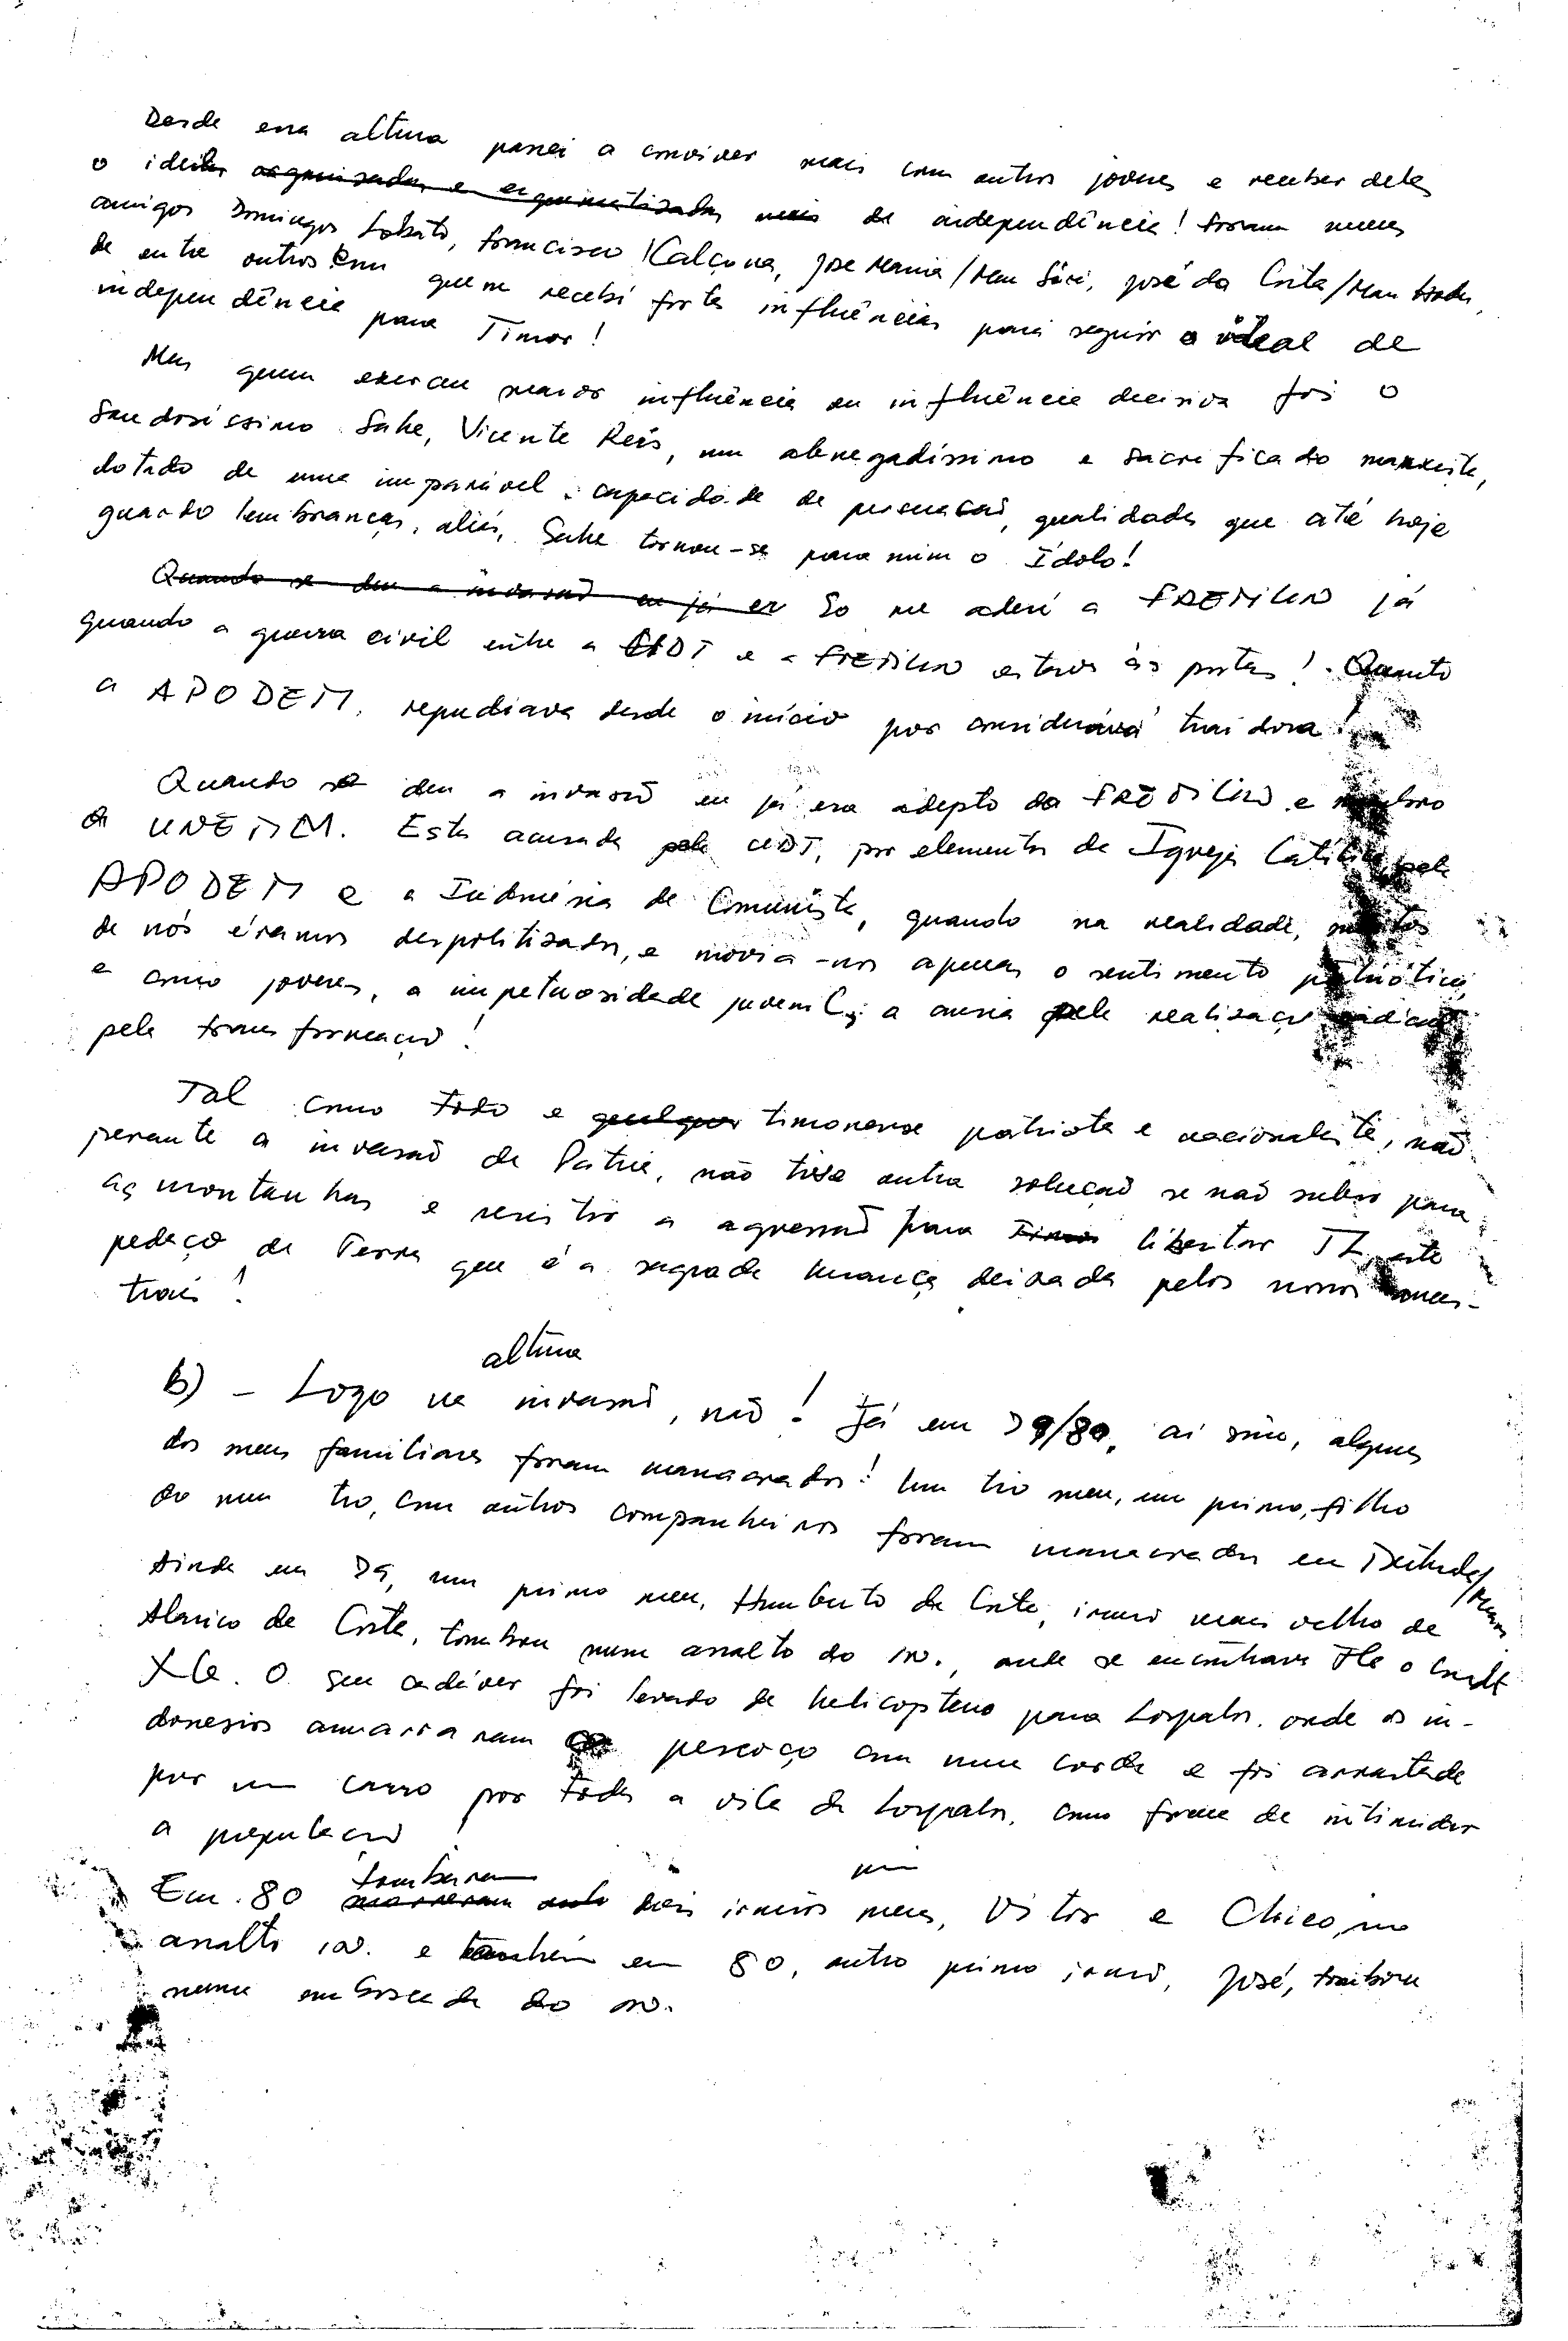 Desde essa altura passei a conviver mais com outros jovens e receber deles
o ideal de independência! Foram meus
amigos Domingos Lobato, Francisco Kalçona, José Maria/Mau Siri, José da Costa/Mau
de entre outros com quem recebi fortes influências para seguir o ideal de
independência para Timor!
Mas quem exerceu maior influência ou influência decisiva foi o
saudosíssimo Sahe, Vicente Reis, um abnegadíssimo e sacrificado marxista,
dotado de uma imparável capacidade de persuasão, qualidades que até hoje
guardo lembranças, aliás, Sahe tornou-se para mim o Ídolo!
Quando se deu a invasão eu já er So me aderi a FRETILIN já
quando a guerra civil entre a UDT e a FRETILIN estava às portas! Quanto
a APODETI, repudiava desde o início por considerá-la traidora!
Quando se deu a invasão eu já era adepto da FRETILIN e membro
da UNETIM. Esta acusada pela UDT, por elementos da Igreja Católica, pela
APODETI e a Indonésia de Comunista, quando na realidade, muitos
de nós éramos despolitizados, e movia-nos apenas o sentimento patriótico,
e como jovens, a impetuosidade juvenil, a ansia pela realização
pela transformação!
Tal como todo e qualquer timorense patriota e nacionalista, não
perante a invasão da Pátria, não tive outra solução se não subir para
as montanhas e resistir a agressão para Timor libertar TL, este
pedaço de Terra que é a sagrada herança deixada pelos nossos ances-
trais!
altura
b) - Logo na invasão, não! Já em 79/80, aí sim, alguns
dos meus familiares foram massacrados! Um tio meu, um primo, filho
do meu tio, com outros companheiros foram massacrados em
Ainda em 79, um primo meu, Humberto da Costa, irmão mais velho de
Alarico da Costa, tombou num assalto do in., onde se encontrava
XG. O seu cadáver foi levado de helicoptero para Lospalos, onde os in-
donésios amarraram pescoço com uma corda e foi arrastado
por um carro por toda a vila de Lospalos, como forma de intimidar
a população!
tombaram
Em 80 morreram dois irmãos meus, Vitor e Chico, no
assalto in. e também em 80, outro primo irmão, José, tombou
numa emboscada do in.